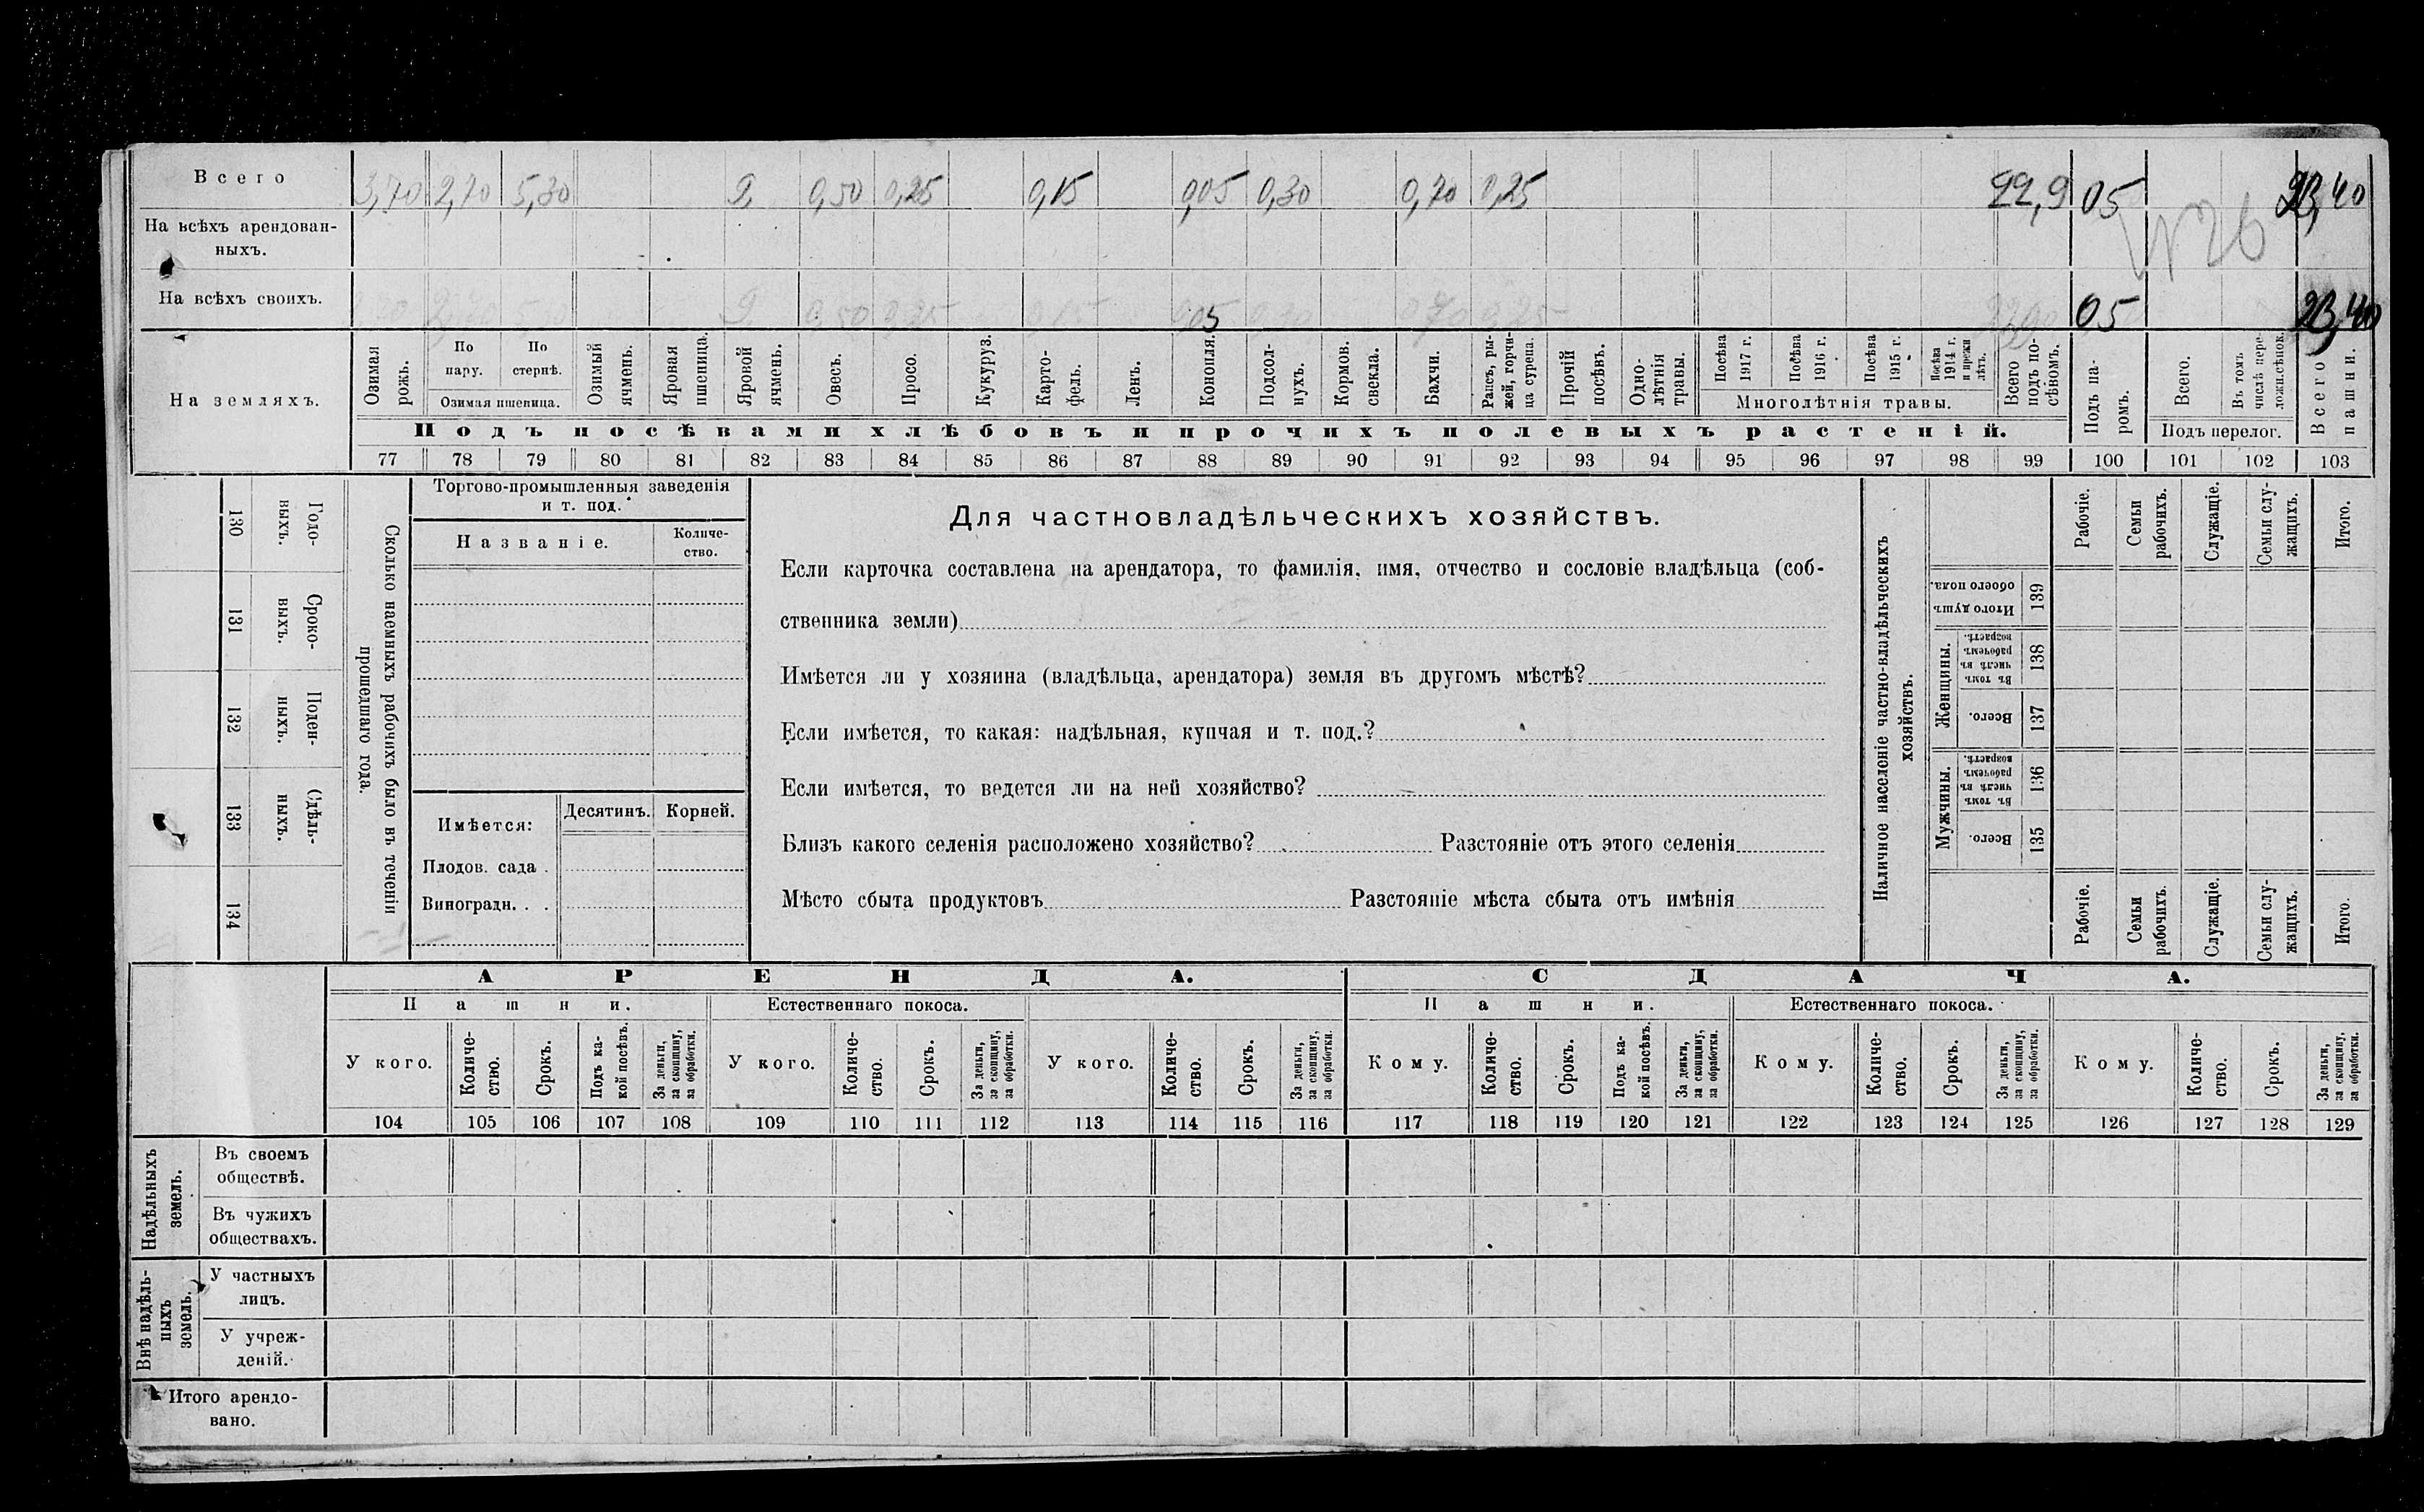 Всего 3,70 2,70 5,30 2 0,50 0,25 0,15 0,05 0,30 0,70 0,25 22,9 05 23,40
На всѣхъ арендован-
ныхъ.
N 26
На всѣхъ своихъ. 05 23,40
На земляхъ.
Озимая рожь.
По пару.
По стернѣ.
Озимая пшеница.
Озимый ячмень.
Яровая пшеница.
Яровой ячмень.
Овесъ.
Просо.
Кукуруз.
Карто-
фель.
Ленъ.
Конопля.
Подсол-
нухъ.
Кормов. свекла.
Бахчи.
Рапсъ, ры-
жей, горчи-
ца сурепа.
Прочій посѣвъ.
Одно-
лѣтнія травы.
Посѣва 1917 г.
Посѣва 1916 г.
Посѣва 1915 г.
Посѣва 1914 г. и прежн лѣтъ.
Многолѣтнія травы.
Всего подъ по-
сѣвомъ.
Подъ па-
ромъ.
Всего.
Въ томъ числѣ пере-
ложн.сѣнок.
Подъ перелог.
Всего пашни.
Подъ посѣвами хлѣбовъ и прочихъ полевыхъ растеній.
77 78 79 80 81 82 83 84 85 86 87 88 89 90 91 92 93 94 95 96 97 98 99 100 101 102 103
130 Годо-
выхъ.
131 Сроко-
выхъ.
132 Поден-
ныхъ.
133 Сдѣль-
ныхъ.
134
Сколько наемныхъ рабочихъ было въ теченіи
прошедшаго года.
Торгово-промышленныя заведенія
и т. под.
Названіе.
Количе-
ство.
Имѣется: Десятинъ. Корней.
Плодов. сада .
Виноградн. . .
Для частновладѣльческихъ хозяйствъ.
Если карточка составлена на арендатора, то фамилія, имя, отчество и сословіе владѣльца (соб-
ственника земли)
Имѣется ли у хозяина (владѣльца, арендатора) земля въ другомъ мѣстѣ?
Если имѣется, то какая: надѣльная, купчая и т. под.?
Если имѣется, то ведется ли на ней хозяйство?
Близъ какого селенія расположено хозяйство? Разстояніе отъ этого селенія
Мѣсто сбыта продуктовъ Разстояніе мѣста сбыта отъ имѣнія
Наличное населеніе частно-владѣльческихъ
хозяйствъ.
Рабочіе.
Семьи рабочихъ.
Служащіе.
Семьи слу-
жащихъ.
Итого.
Итого душъ обоего пола. 139
Женщины.
Въ томъ числѣ въ рабочемъ возрастѣ. 138
Всего. 137
Мужчины.
Въ томъ числѣ въ рабочемъ возрастѣ. 136
Всего. 135
Рабочіе.
Семьи рабочихъ.
Служащіе.
Семьи слу-
жащихъ.
Итого.
АРЕНДА. СДАЧА.
Пашни. Естественнаго покоса. Пашни. Естественнаго покоса.
У кого.
Количе-
ство.
Срокъ.
Подъ ка-
кой посѣвъ.
За деньги,
за скопщину,
за обработки.
У кого.
Количе-
ство.
Срокъ.
За деньги,
за скопщину,
за обработки.
У кого.
Количе-
ство.
Срокъ.
За деньги,
за скопщину,
за обработки.
Кому.
Количе-
ство.
Срокъ.
Подъ ка-
кой посѣвъ.
За деньги,
за скопщину,
за обработки.
Кому.
Количе-
ство.
Срокъ.
За деньги,
за скопщину,
за обработки.
Кому.
Количе-
ство.
Срокъ.
За деньги,
за скопщину,
за обработки.
104 105 106 107 108 109 110 111 112 113 114 115 116 117 118 119 120 121 122 123 124 125 126 127 128 129
Надѣльныхъ
земель.
Въ своемъ
обществѣ.
Въ чужихъ
обществахъ.
Внѣ надѣль-
ныхъ
земель.
У частныхъ
лицъ.
У учреж-
деній.
Итого арендо-
вано.